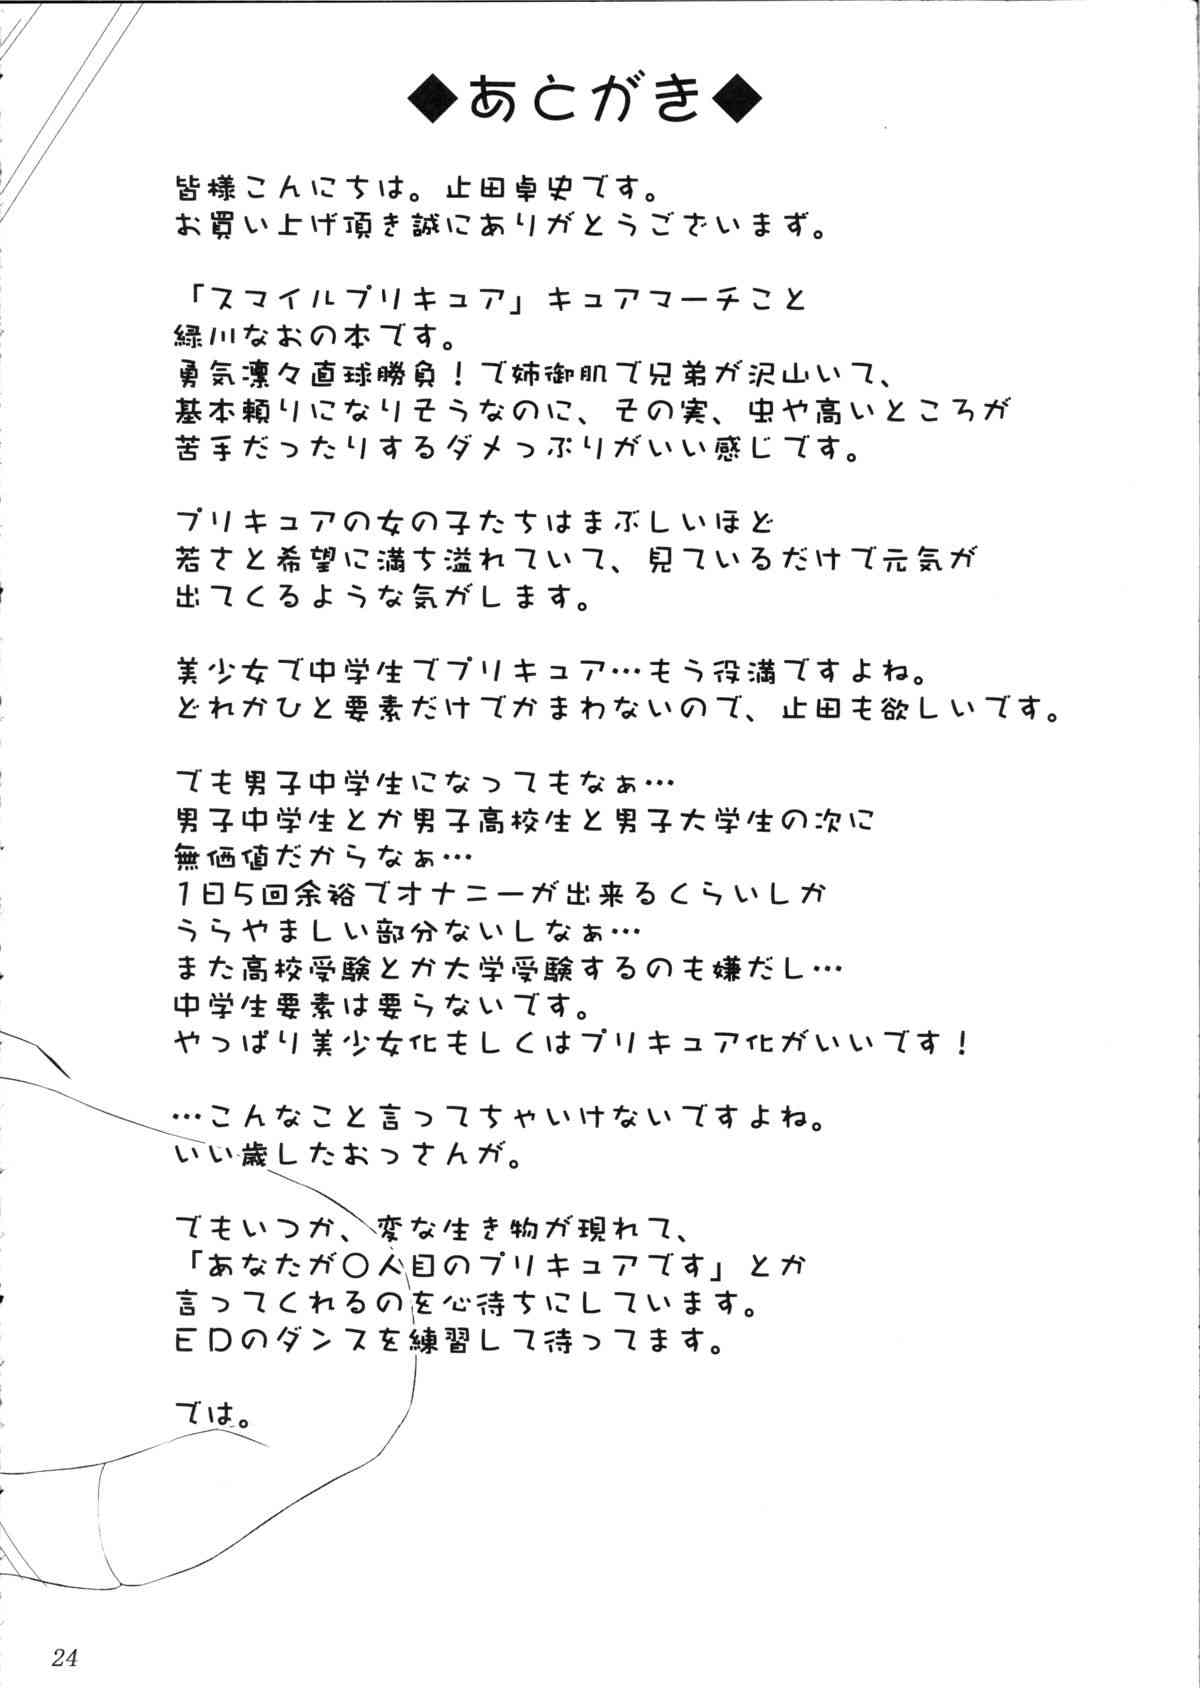 ◆あとがき◆
皆様こんにちは。止田卓史です。
お買い上げ頂き誠にありがとうございまず。
「スマイルプリキュア」キュアマーチこと
緑川なおの本です。
勇気凛々直球勝負！で姉御肌で兄弟が沢山いて、
基本頼りになりそうなのに、その実、虫や高いところが
苦手だったりするダメっぷりがいい感じです。
プリキュアの女の子たちはまぶしいほど
若さと希望に満ち溢れていて、見ているだけで元気が
出てくるような気がします。
美少女で中学生でプリキュア…もう役満ですよね。
どれかひと要素だけでかまわないので、止田も欲しいです。
でも男子中学生になってもなぁ…
男子中学生とか男子高校生と男子大学生の次に
無価値だからなぁ…
１日５回余裕でオナニーが出来るくらいしか
うらやましい部分ないしなぁ…
また高校受験とか大学受験するのも嫌だし…
中学生要素は要らないです。
やっぱり美少女化もしくはプリキュア化がいいです！
…こんなこと言ってちゃいけないですよね。
いい歳したおっさんが。
でもいつか、変な生き物が現れて、
「あなたが〇人目のプリキュアです」とか
言ってくれるのを心待ちにしています。
ＥＤのダンスを練習して待ってます。
では。
24